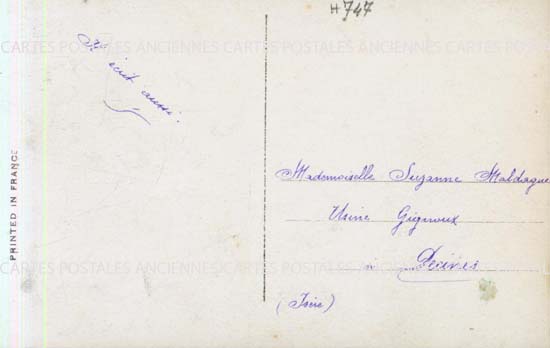 H 747
CARTES POSTALES ANCIENNES CARTES POSTALES ANCIENNES CARTES POSTALES
écrit aussi.
PRINTED IN FRANCE
Mademoiselle Suzanne Maldague
Usine Gignoux
à Decines
(Isère)
CARTES POSTALES ANCIENNES CARTES POSTALES ANCIENNES CARTES POSTALES